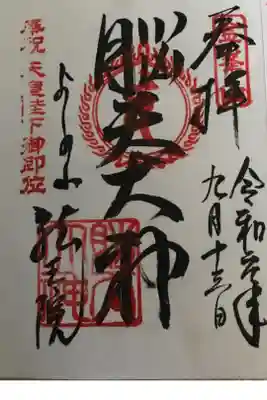 奉拝
令和元年
九月十三日
脳天大神
よしの山
法王院
奉祝 天皇陛下御即位